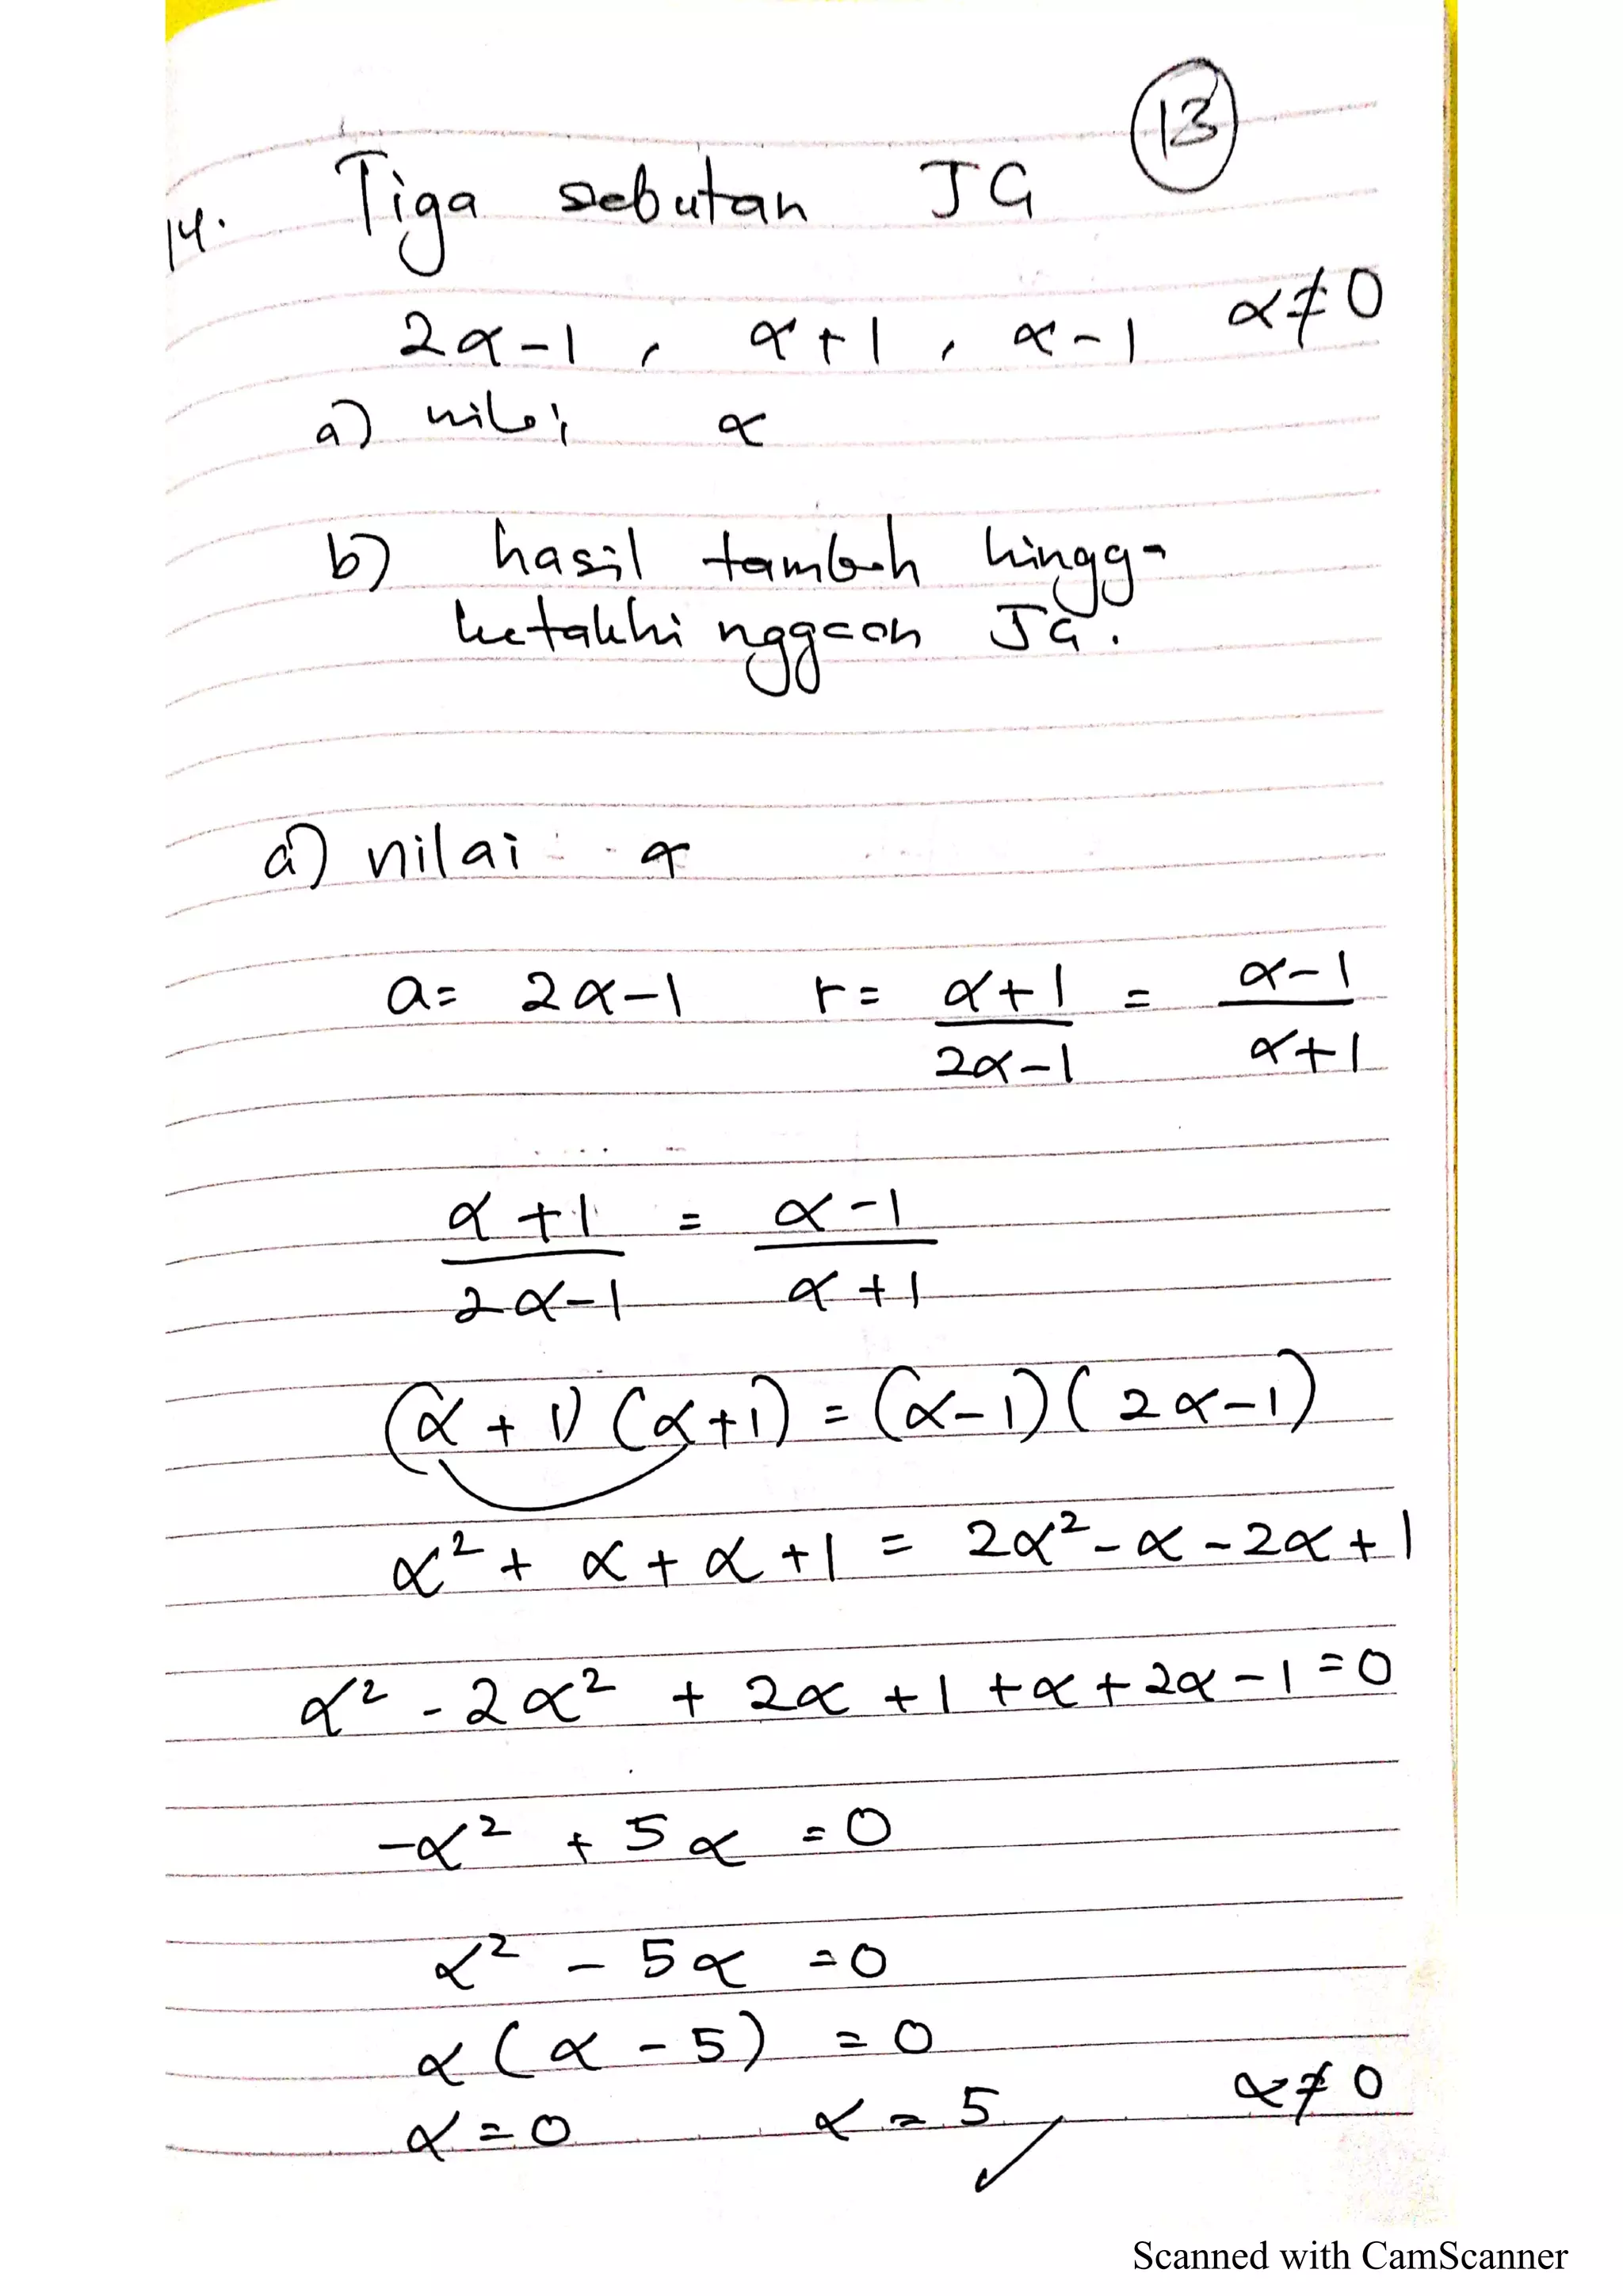 13
14. Tiga sebutan JG
2α-1, α+1, α-1 α≠0
a) nilai α
b) hasil tambah hingg-
ketakhinggaan JG.
a) nilai α
a= 2α-1 r= α+1/2α-1 = α-1/α+1
α+1/2α-1 = α-1/α+1
(α+1)(α+1)=(α-1)(2α-1)
α²+α+α+1 = 2α²-α-2α+1
α²-2α²+2α+1+α+2α-1=0
-α²+5α=0
α²-5α=0
α(α-5)=0
α=0 α=5 ✓ α≠0
Scanned with CamScanner